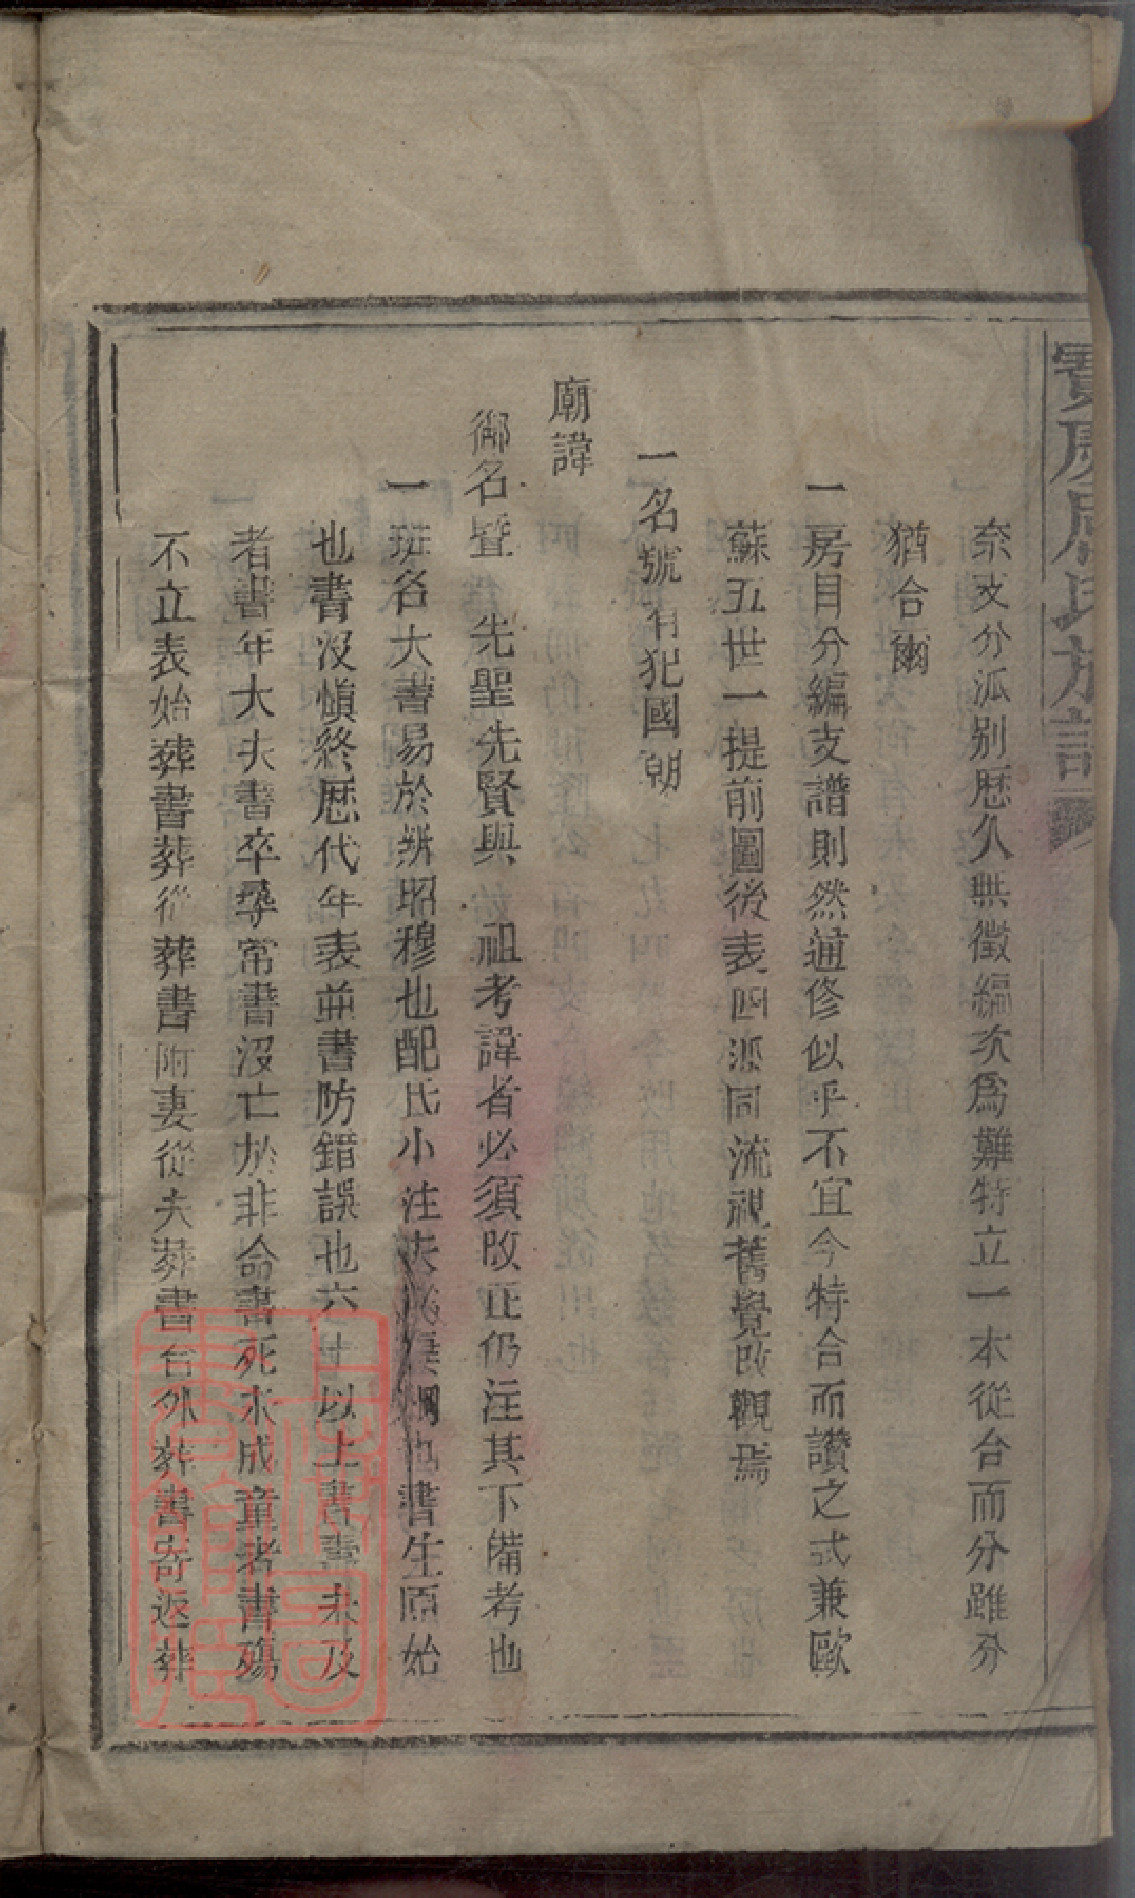 奈支分派别歴久無徵編次爲難特立一本從合而分雖分
猶合爾
一房目分編支譜則然通修似乎不宜今特合而讚之式兼歐
蘇五世一提前圖後表四派同流視舊覺改觀焉
一名號有犯國朝
廟諱
御名暨 先聖先賢與 祖考諱者必須改正仍注其下備考也
一班名大書易於辨昭穆也配氏小注夫爲妻綱也書生原始
也書沒愼終歴代年表並書防錯誤也六十以上書壽未及
者書年大夫書卒尋常書沒亡於非命書死未成童者書殤
不立表始葬書葬從葬書附妻從夫葬書合外葬書寄返葬
上海圖書館藏